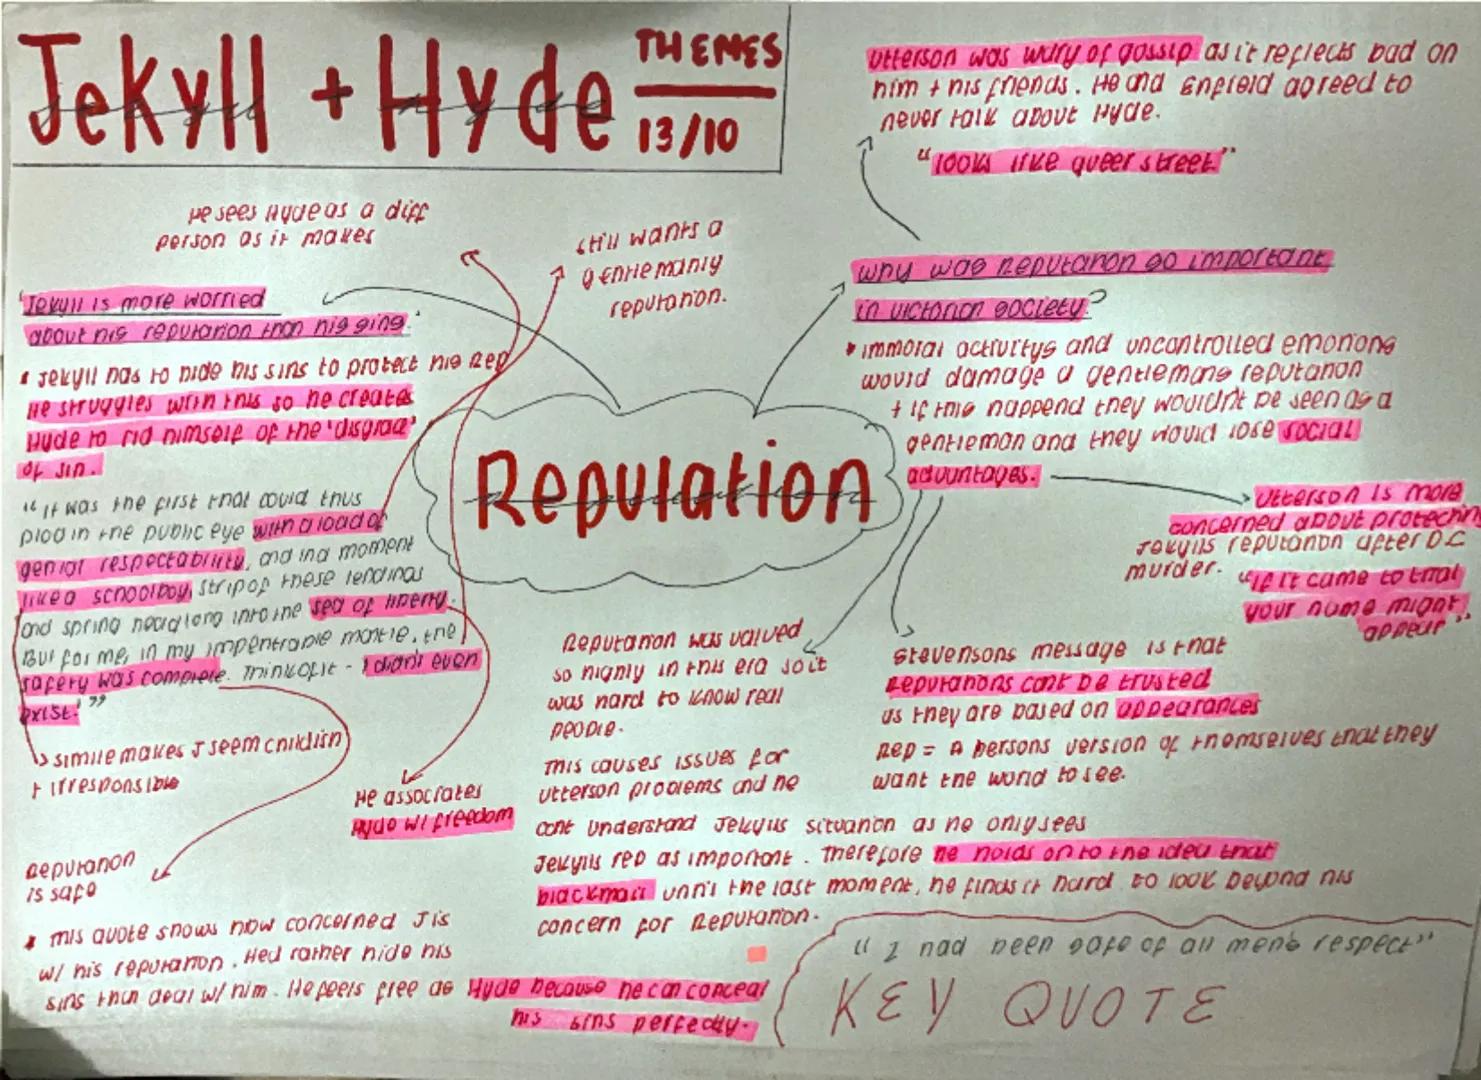 Jekyll + Hyde THEMES
13/10
Utterson was wary of gossip as it reflects bad on
him + his friends. He and Enfield agreed to
never talk about Hyde.
"looks like queer street"
He sees Hyde as a diff
person as it makes
still wants a
gentlemanly
reputation.
Why was Reputation so important
in victorian society?
'Jekyll is more worried
about his reputation than his sins.'
• Jekyll has to hide his sins to protect his Rep
He struggles with this so he creates
Hyde to rid himself of the 'disgrace'
of sin.
"it was the first that could thus
plod in the public eye with a load of
genial respectability, and in a moment
like a schoolboy, strip of these lendings
and spring headlong into the sea of liberty.
But for me, in my impentrable mantle, the
safety was complete. Think of it - I didn't even
exist!"
simile makes J seem childish
+ irresponsible
Reputation
is safe
He associates
Hyde w/ freedom
• This quote shows how concerned J is
w/ his reputation. Hed rather hide his
sins than deal w/ him. He feels free as Hyde because he can conceal
his sins perfectly.
Reputation
• immoral activitys and uncontrolled emotions
would damage a gentlemans reputation
+ if this happend they wouldn't be seen as a
gentleman and they would lose social
advantages.
Utterson is more
concerned about protectin
Jekylls reputation after D.C
murder. "if it came to trial
your name might
appear"
Reputation was valued
so highly in this era so it
was hard to know real
people.
This causes issues for
Utterson problems and he
cant understand Jekylls situation as he only sees
Jekylls rep as important. Therefore he holds on to the idea that
blackmail until the last moment, he finds it hard to look beyond his
concern for Reputation.
Stevensons message is that
Reputations cant be trusted
as they are based on appearances
Rep = A persons version of themselves that they
want the world to see.
"I had been safe of all men's respect"
KEY QUOTE